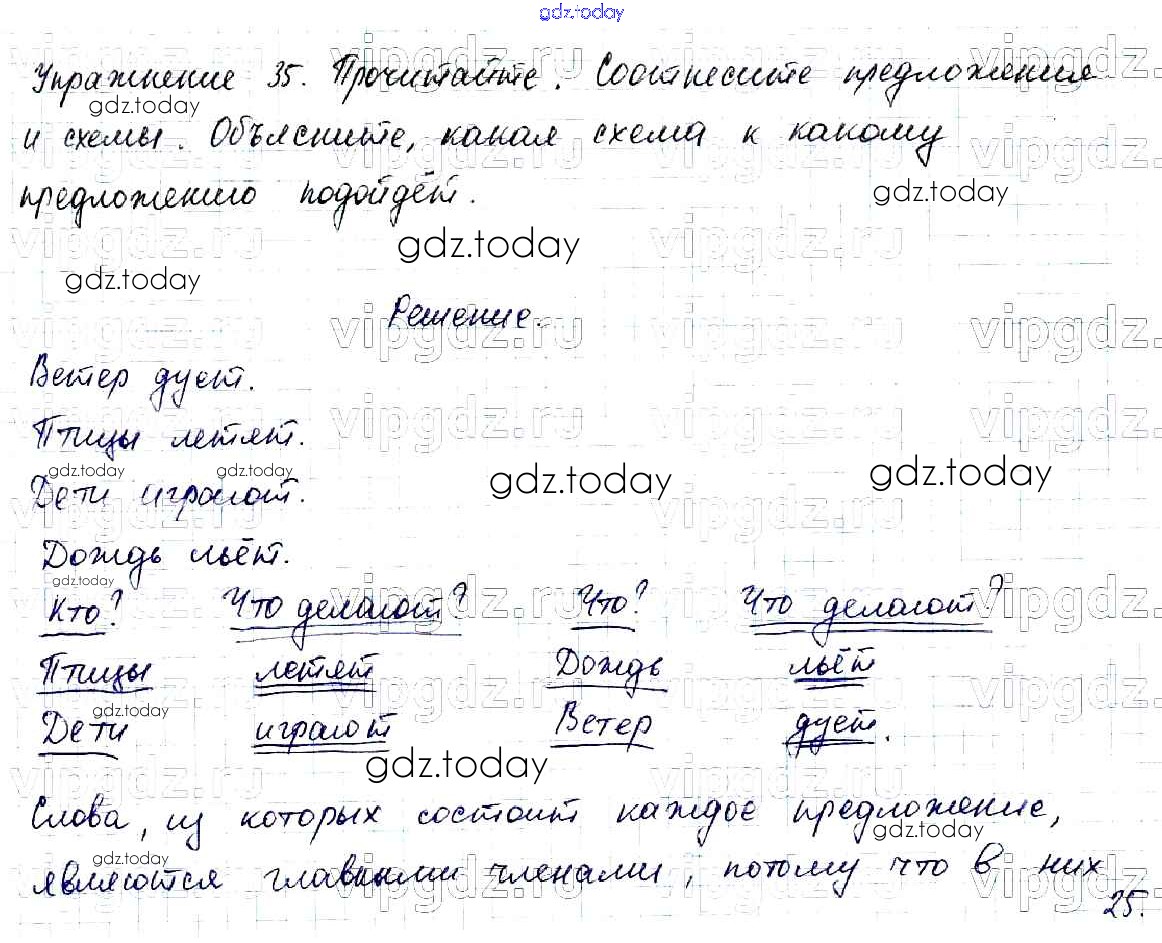 gdz.today
Упражнение 35. Прочитайте. Соотнесите предложения
и схемы. Объясните, какая схема к какому
предложению подойдёт.
Решение.
Ветер дует.
Птицы летят.
Дети играют.
Дождь льёт.
Кто? Что делают? Что? Что делают?
Птицы летят Дождь льёт
Дети играют Ветер дует.
Слова, из которых состоит каждое предложение,
являются главными членами, потому что в них
25.